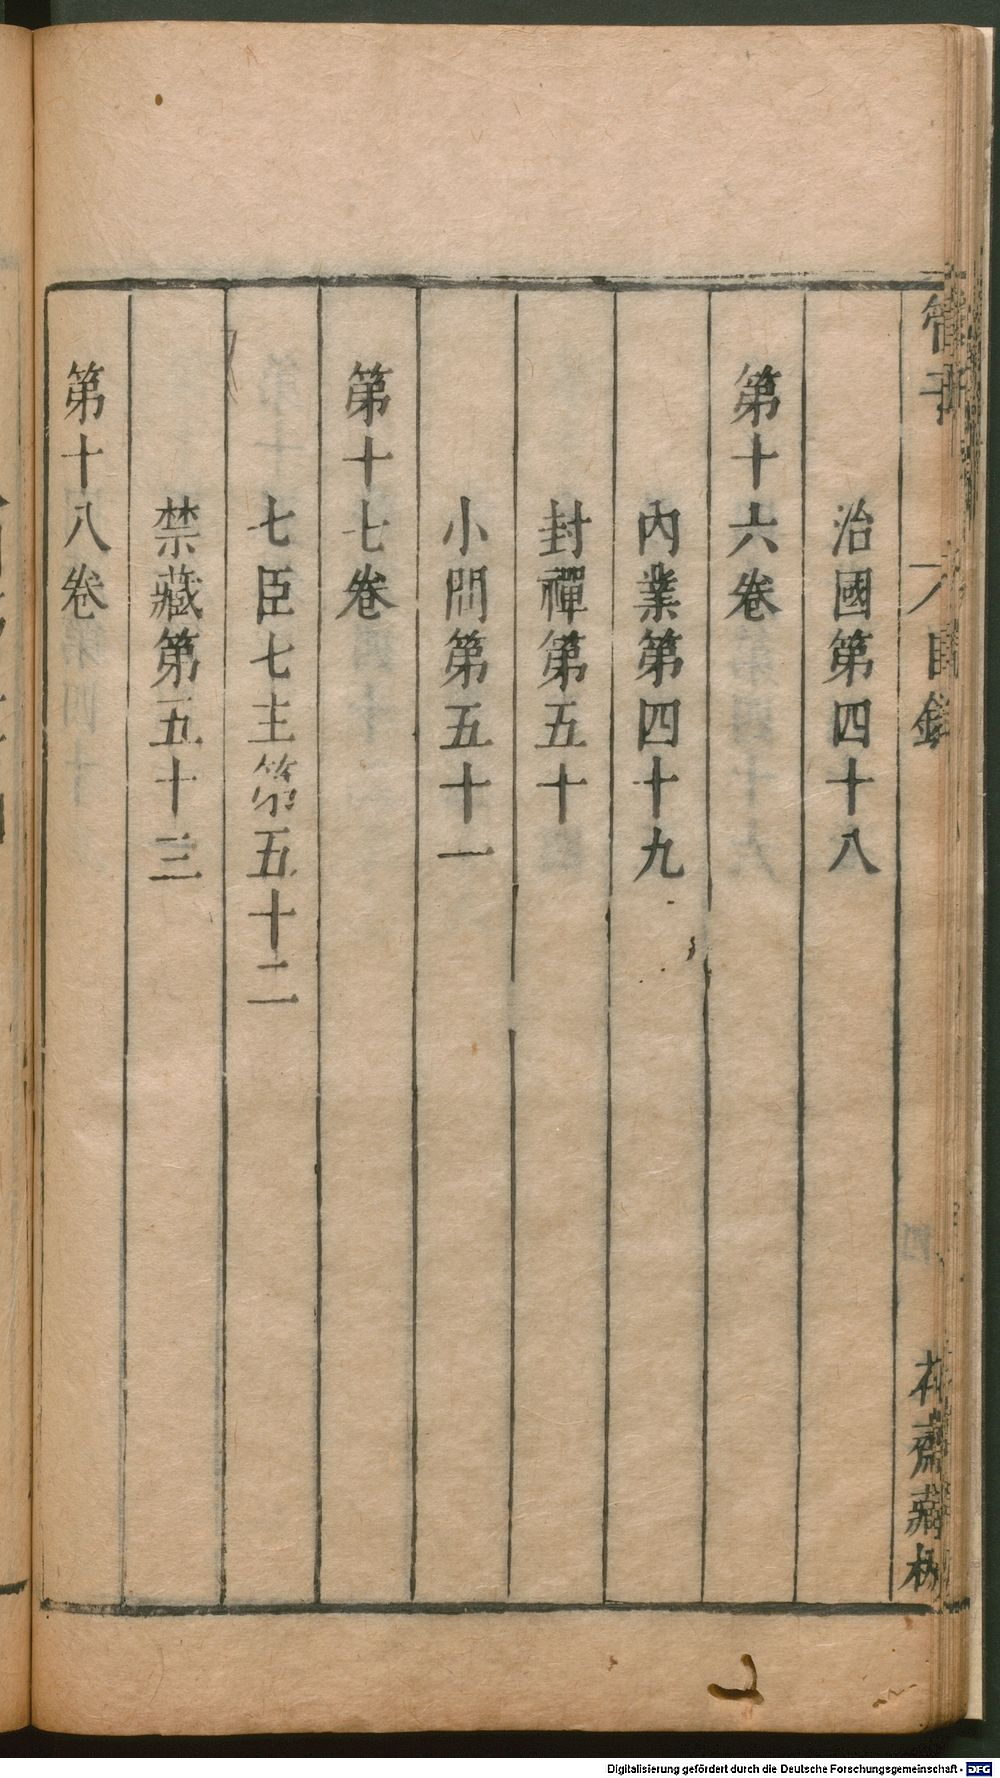 管子
目錄
治國第四十八
第十六卷
內業第四十九
封禪第五十
小問第五十一
第十七卷
七臣七主第五十二
禁藏第五十三
第十八卷
Digitalisierung gefördert durch die Deutsche Forschungsgemeinschaft - DFG